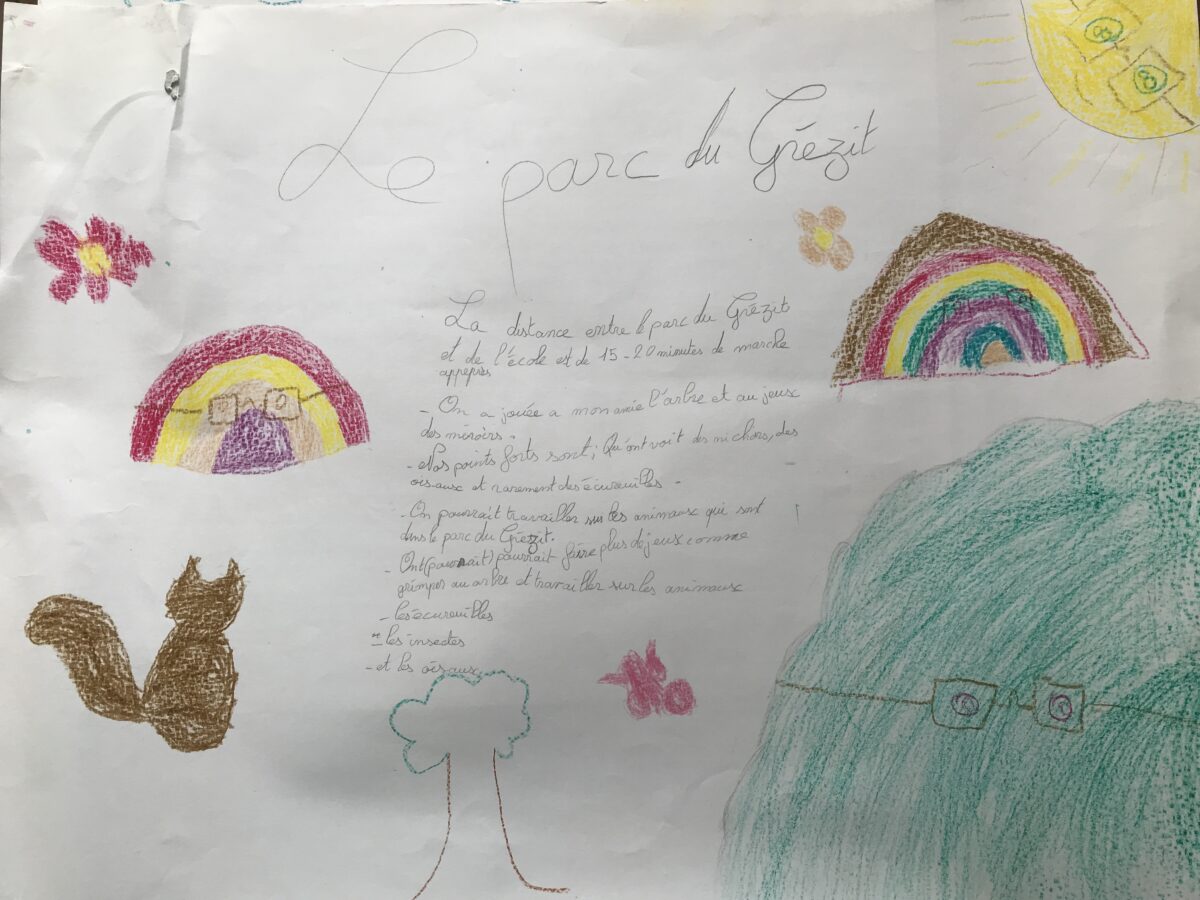 Le parc du Grézit
La distance entre le parc du Grézit
et de l'école est de 15-20 minutes de marche
appeprès
- On a jouée a mon amie l'arbre et au jeux
des miroirs.
- Nos points forts sont; Qu'ont voit des nichoirs, des
oisaux et rarement des écureuilles -
- On pourrait travailler sur les animaux qui sont
dans le parc du Grézit.
- Ont (pourrait) pourrait faire plus de jeux comme
grimper au arbre et travailler sur les animaux
- les écureuilles
- les insectes
- et les oisaux